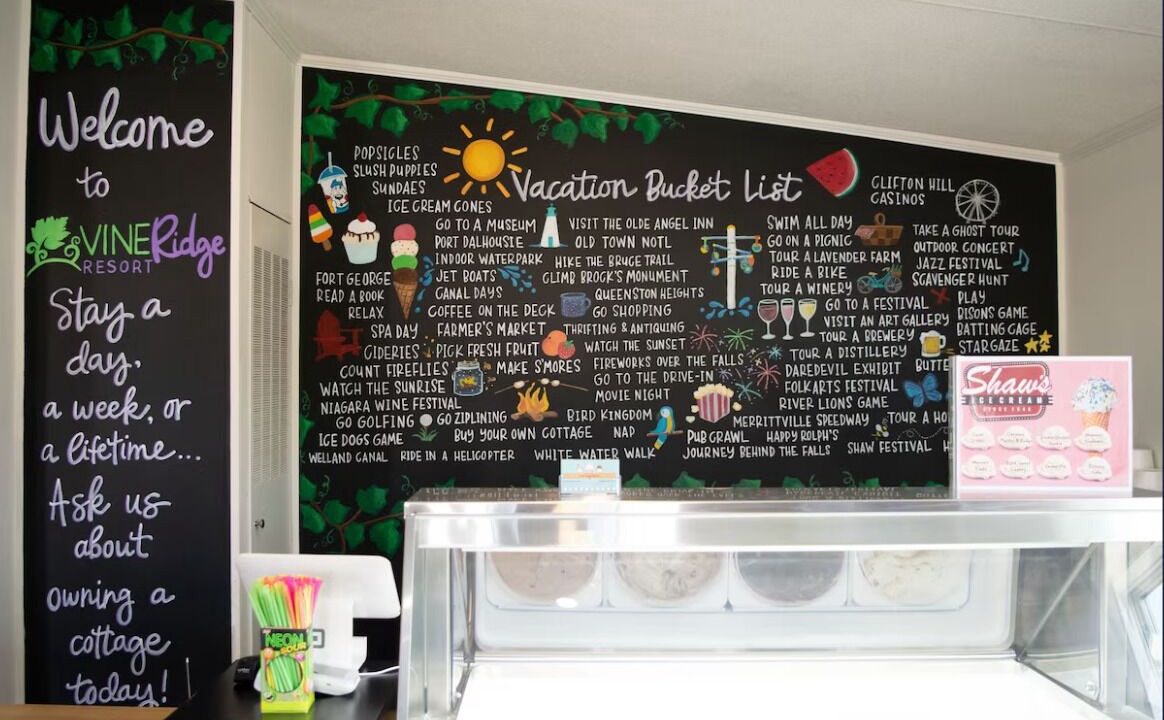 Welcome
to
VINERidge
RESORT
Stay a
day,
a week, or
a lifetime...
Ask us
about
owning a
cottage
today!
Vacation Bucket List
POPSICLES
SLUSH PUPPIES
SUNDAES
ICE CREAM CONES
GO TO A MUSEUM
PORT DALHOUSIE
INDOOR WATERPARK
JET BOATS
CANAL DAYS
COFFEE ON THE DECK
FORT GEORGE
READ A BOOK
RELAX
SPA DAY
FARMER'S MARKET
CIDERIES
PICK FRESH FRUIT
COUNT FIREFLIES
MAKE S'MORES
WATCH THE SUNRISE
NIAGARA WINE FESTIVAL
GO GOLFING
GO ZIPLINING
ICE DOGS GAME
BUY YOUR OWN COTTAGE
WELLAND CANAL
RIDE IN A HELICOPTER
WHITE WATER WALK
VISIT THE OLDE ANGEL INN
OLD TOWN NOTL
HIKE THE BRUCE TRAIL
CLIMB BROCK'S MONUMENT
QUEENSTON HEIGHTS
GO SHOPPING
THRIFTING & ANTIQUING
WATCH THE SUNSET
FIREWORKS OVER THE FALLS
GO TO THE DRIVE-IN
MOVIE NIGHT
BIRD KINGDOM
NAP
PUB CRAWL
HAPPY ROLPH'S
JOURNEY BEHIND THE FALLS
SWIM ALL DAY
GO ON A PICNIC
TOUR A LAVENDER FARM
RIDE A BIKE
TOUR A WINERY
GO TO A FESTIVAL
VISIT AN ART GALLERY
TOUR A BREWERY
TOUR A DISTILLERY
DAREDEVIL EXHIBIT
FOLK ARTS FESTIVAL
RIVER LIONS GAME
MERRITTVILLE SPEEDWAY
SHAW FESTIVAL
CLIFTON HILL
CASINOS
TAKE A GHOST TOUR
OUTDOOR CONCERT
JAZZ FESTIVAL
SCAVENGER HUNT
PLAY
BISONS GAME
BATTING CAGE
STARGAZE
BUTTE
TOUR A HO
H
Shaw's
ICE CREAM
NEON
SOUR